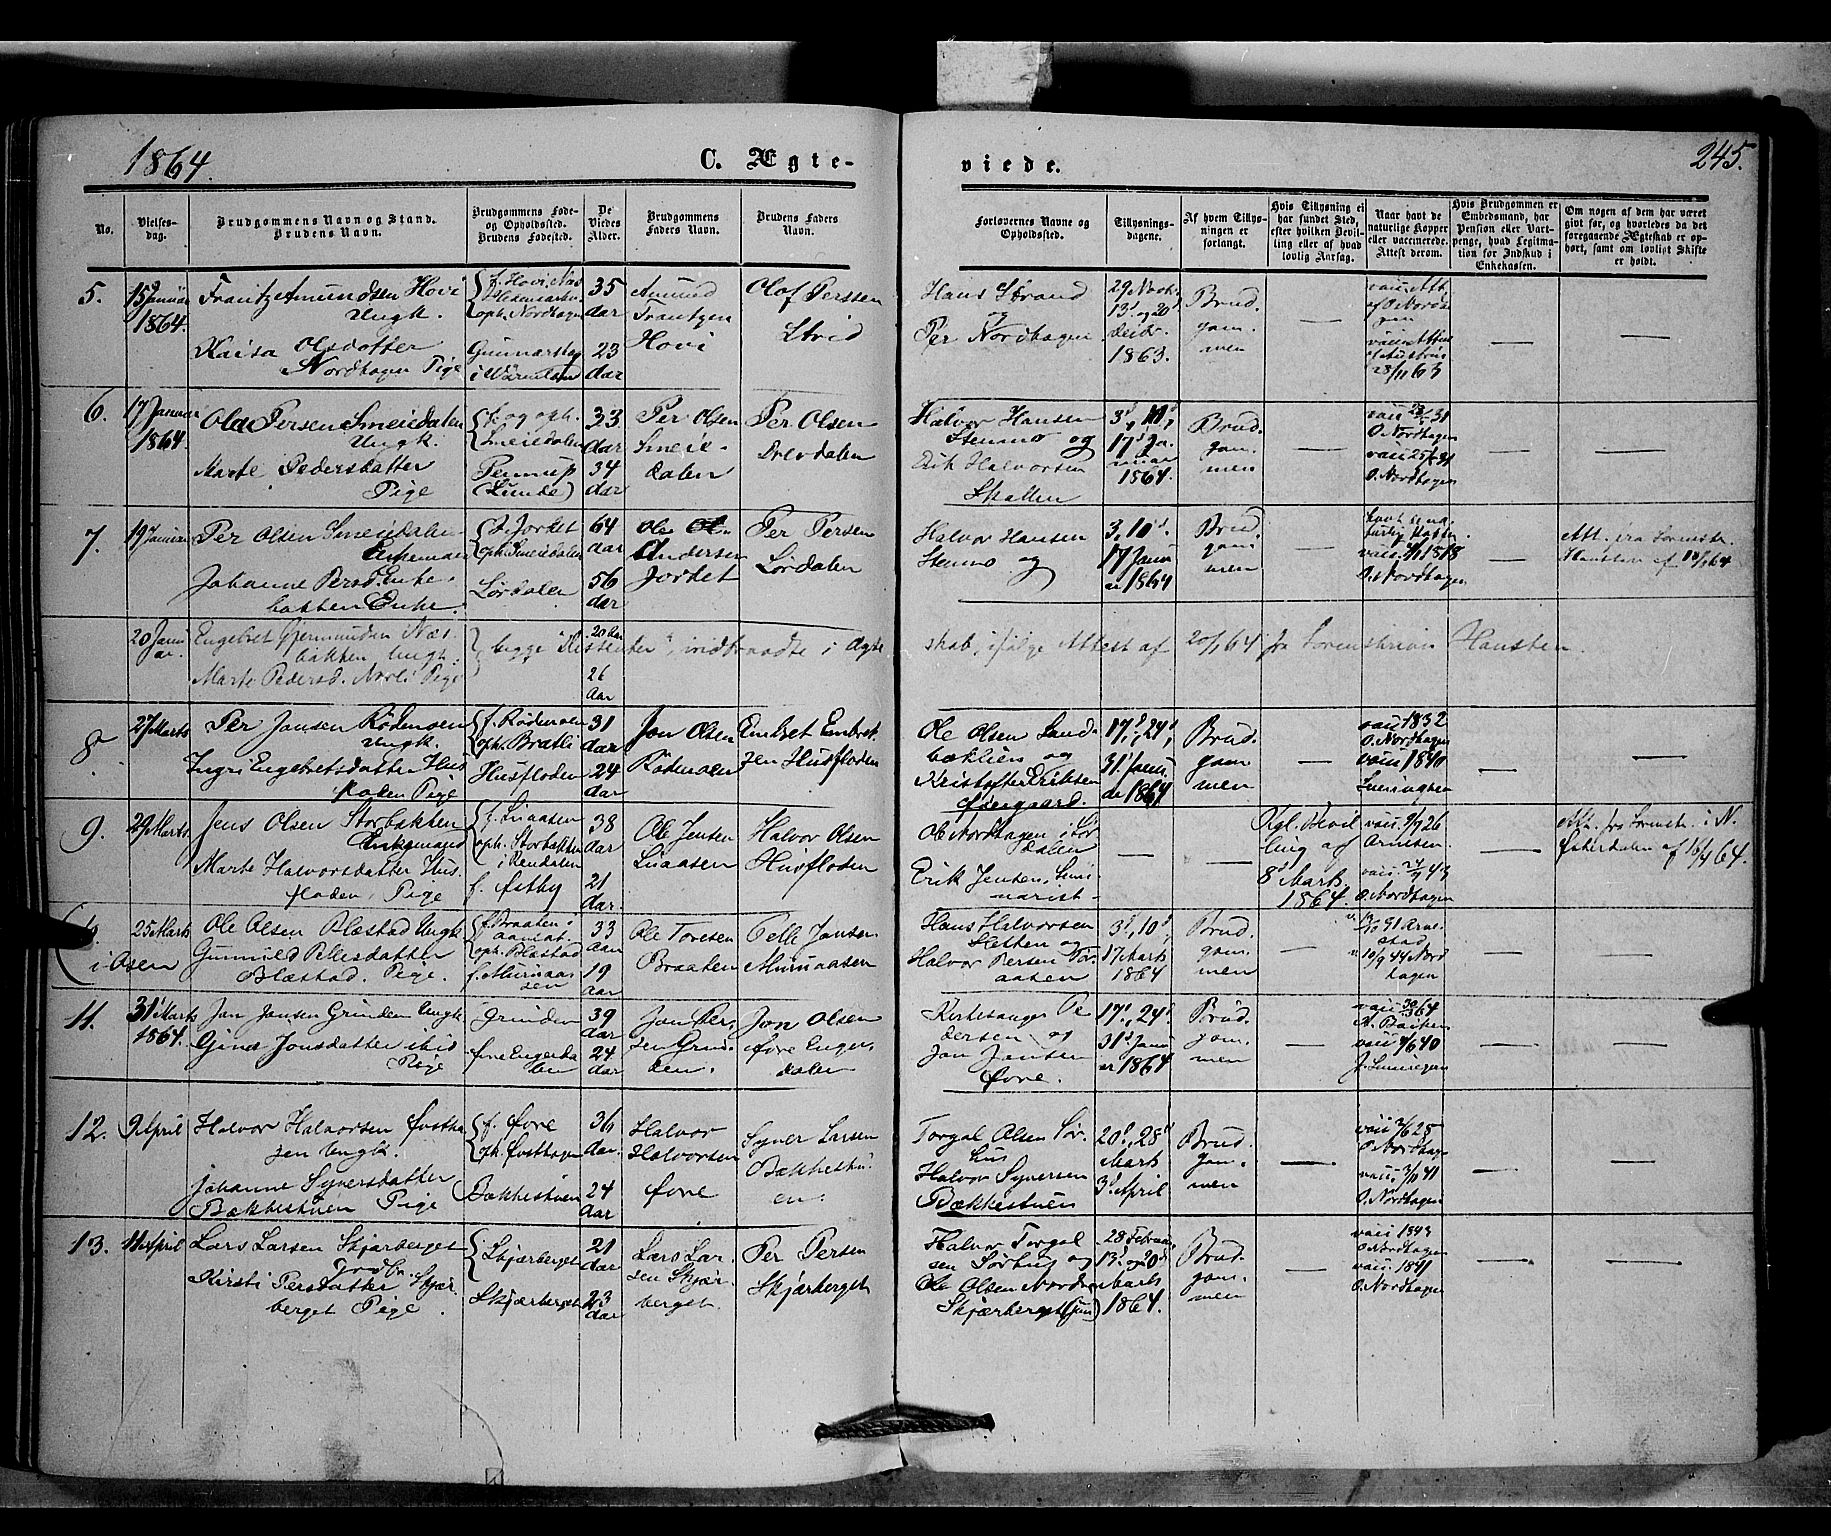 1864.
C. Ægte-
viede.
245.
No.
Vielses-
dag.
Brudgommens Navn og Stand.
Brudens Navn.
Brudgommens Føde-
og Opholdssted.
Brudens Fødested.
De
Viedes
Alder.
Brudgommens
Faders Navn.
Brudens Faders
Navn.
Forlovernes Navne og
Opholdssted.
Tillysnings-
dagene.
Af hvem Tillys-
ningen er
forlangt.
Hvis Tillysning ei
har fundet Sted,
efter hvilken Bevil-
ling eller af hvad
lovlig Aarsag.
Naar havt de
naturlige Kopper
eller vaccinerede.
Attest derom.
Hvis Brudgommen er
Embedsmand, har
Pension eller Vart-
penge, hvad Legitima-
tion for Indskud i
Enkekassen.
Om nogen af dem har været
givt før, og hvorledes da det
foregaaende Ægteskab er op-
hørt, samt om lovligt Skifte
er holdt.
5.
15 Januar
1864.
Frantz Amundsen Hovi
Ungk.
Kaisa Olsdatter
Nordhagen Pige
f. Hovi
oph. Nordhagen
Gunnarskog
i Wermland
35
Aar
23
Aar
Amund
Frantzen
Hovi
Olof Perssen
Hans Strand
og
Per Nordhagen
29 Novbr.
13' og 20'
Decbr.
1863.
Brud.
gom.
men
23/11 63
6.
17 Januar
1864.
Ola Persen Smeiedalen
Ungk.
Marte Pedersdatter
Pige
f. og oph.
Smeiedalen
(Lunde)
33
Aar
34
Aar
Per Olsen
Smeie-
dalen
Per Olsen
Drevdalen
Halvor Hansen
Stenmo og
Erik Halvorsen
3', 10',
17' Ja-
nuar
1864.
Brud.
gom.
men
O. Nordhagen
O. Nordhagen
7.
19 Januar
Per Olsen Smeiedalen
Enkemand
Johanne Persd. Enke-
bakken Enke.
f. Jordet
oph. Smeiedalen
Lørdalen
64
Aar
56
Aar
Ole
Andersen
Jordet
Per Persen
Lørdalen
Halvor Hansen
Stenmo og
3, 10'
17 Janu
ar 1864
Brud.
gom
men
O. Nordhagen
Att. fra Sorenskr.
20 Janu
ar.
Engebret Gjermundsen Næs-
bakken Ungk.
Marte Pedersd. Norli Pige
begge Dissenter, indtraadte i Ægte
26
Aar
skab, ifølge Attest af 20/1 64 fra Sorenskriver Hansten.
8
27 Marts
Per Jonsen Rødmoen
Ungk.
Ingri Engebretsdatter Hus
floden Pige
f. Rødmoen
oph. Bratli
Husfloden
31
Aar
24
Aar
Jon Olsen
Rødmoen
Embret Embret-
zen Husfloden
Ole Olsen Sand-
bæklien og
Kristoffer Eriksen
17', 24',
31' Janu.
ar 1864
Brud.
gom
men
vacc. 1832
O. Nordhagen
vacc. 1840
9.
29 Marts
Jens Olsen Storbakken
Enkemand
Marte Halvorsdatter Hus
floden, Pige
oph. Storbakken
i Rendalen
f. Østby
38
Aar
21
Aar.
Ole Jensen
Halvor Olsen
Husfloden
Ole Nordhagen i Lør
dalen
Erik Jensen, Semi
narist
Kgl. Bevil
ling af
8' Marts
1864.
O. Nordhagen
Att. fra Sorenskr. i N.
Østerdalen
i Osen
25 Marts
Ole Olsen Blæstad Ungk
Gunnild Pellesdatter
Blæstad. Pige.
f. Braaten i
Aamot.
oph. Blæstad
33
Aar
19
Aar
Ole Toresen
Braaten
Pelle Jonsen
Hans Halvorsen
Sletten og
Halvor Persen Tør-
aasen
3', 10',
17 Marts
1864
Brud.
gom.
men
11.
31' Marts
1864.
Jon Jonsen Grinden Ungk
Gjina Jonsdatter ibid
Pige
Grinden
Øvre Engerda
len
39
Aar
24
Aar
Jon Per-
sen Grin-
den.
Jon Olsen
Øvre Enger-
dalen
Kirkesanger Pe
dersen og
Jon Jonsen
Øvre.
17', 24'
31' Janu
ar 1864
Brud.
gom.
men
12.
9 April
Halvor Halvorsen Østha
gen Ungk.
Johanne Syversdatter
Bækkestuen Pige
f. Øvre
oph. Østhagen
Bækkestuen
36
Aar.
24
Aar
Halvor
Halvorsen
Øvre
Syver Larsen
Bækkestu
en.
Torgal Olsen Sør-
hus
Halvor Syversen
Bækkestuen
20', 28'
Marts
3' April
Brud.
gom.
men
O. Nordhagen
O. Nordhagen
13.
11 April
Lars Larsen Skjærberget
Kirsti Persdatter Skjær
berget Pige.
Skjærberget
Skjærberget
21
Aar
23
Aar
Lars Lar-
sen Skjær-
berget.
Per Persen
Skjærberget
Halvor Torgal
sen Sørhus og
Ole Olsen Nordre
Skjærberget (jun)
28 Februar,
13' og 20'
Marts
1864.
Brud.
gom.
men
vacc 1843
O. Nordhagen
vacc. 1841
O. Nordhagen